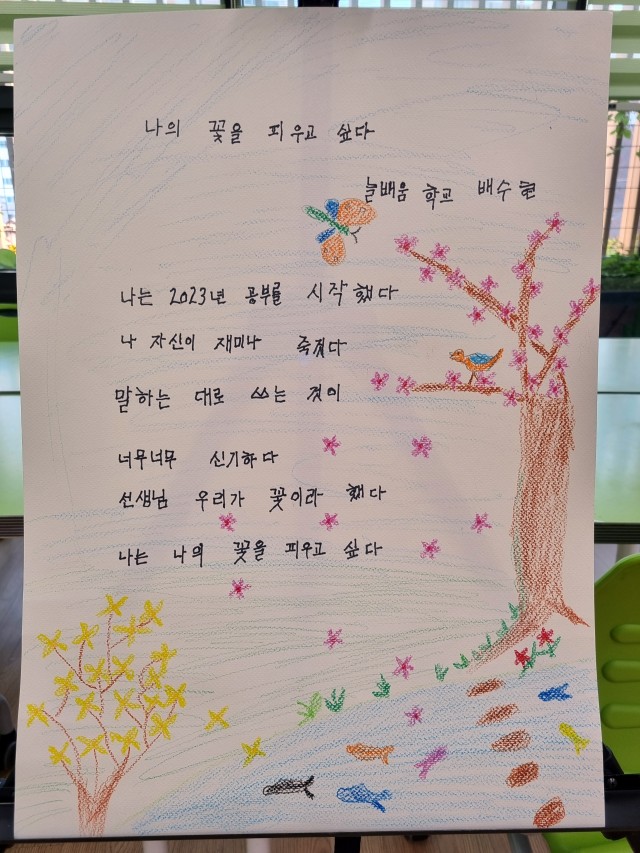 나의 꽃을 피우고 싶다
늘배움 학교 배수현
나는 2023년 공부를 시작했다
나 자신이 재미나 죽겠다
말하는 대로 쓰는 것이
너무너무 신기하다
선생님 우리가 꽃이라 했다
나는 나의 꽃을 피우고 싶다